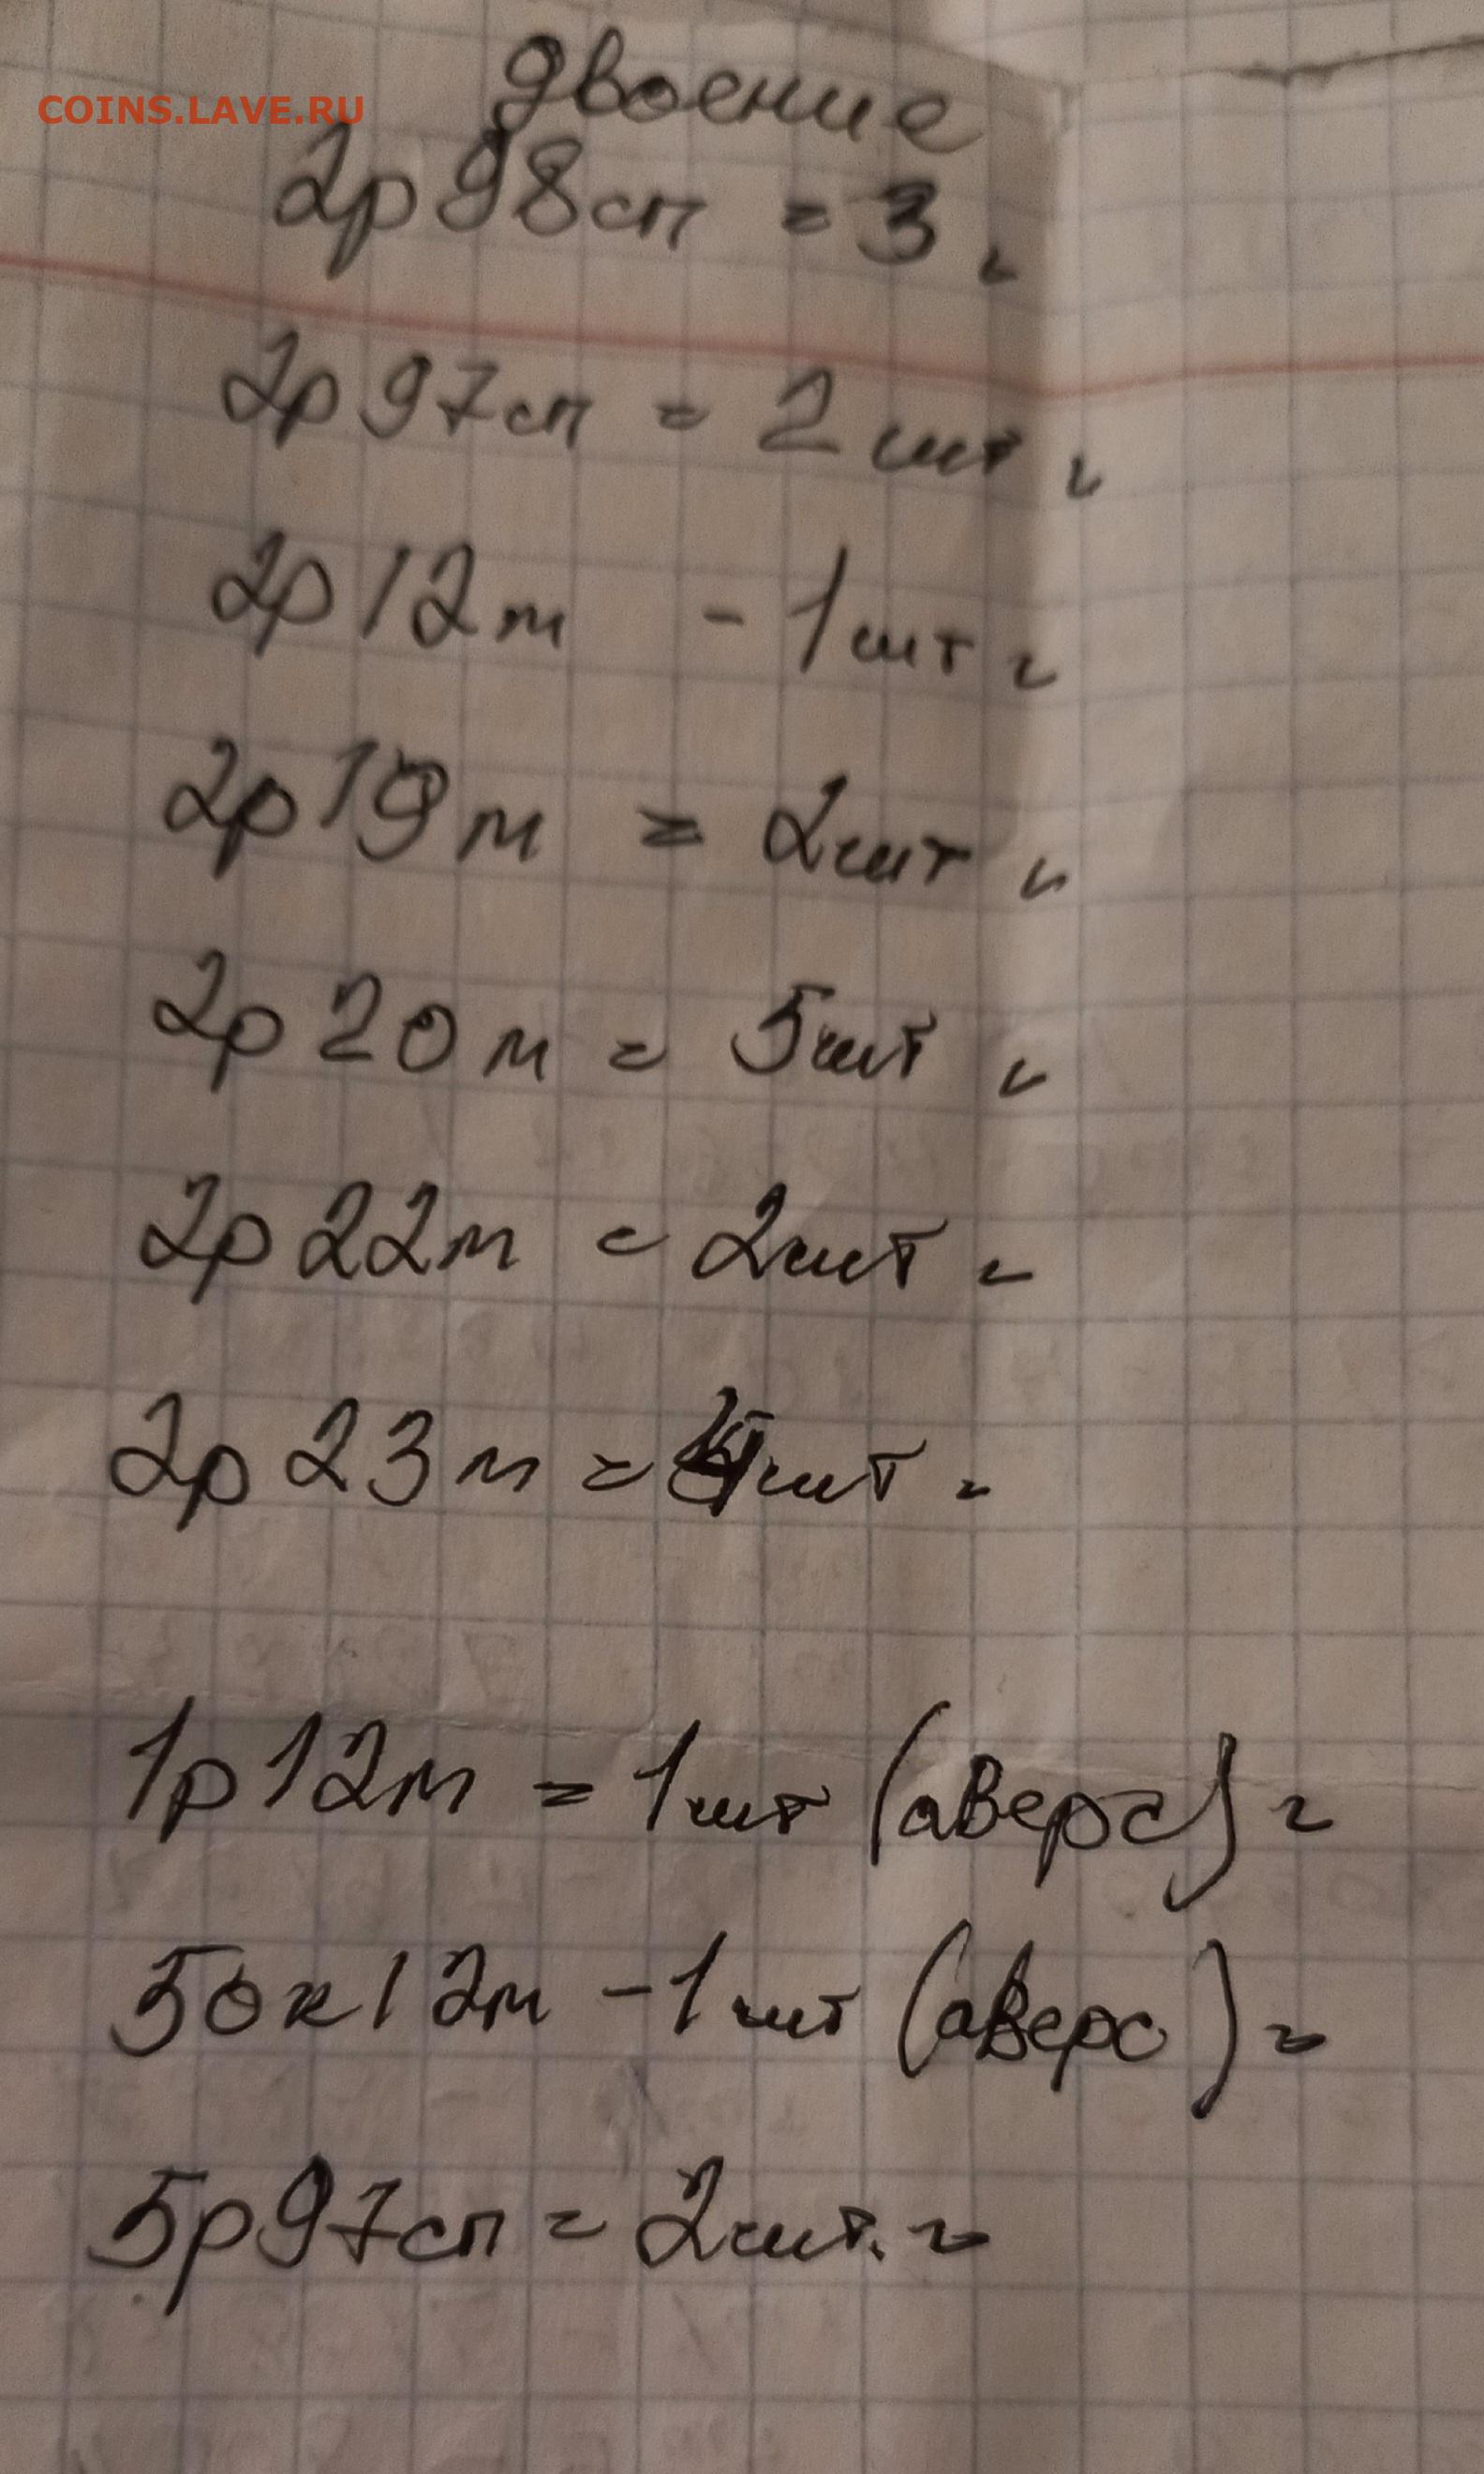 COINS.LAVE.RU
двоение
2р 98сп = 3
2р 97сп = 2 шт
2р 12м - 1 шт
2р 19м = 2шт
2р 20м = 5шт
2р 22м = 2шт
2р 23м = шт
1р 12м = 1шт (аверс)
50к 12м - 1 шт (аверс)
5р 97сп = 2шт.